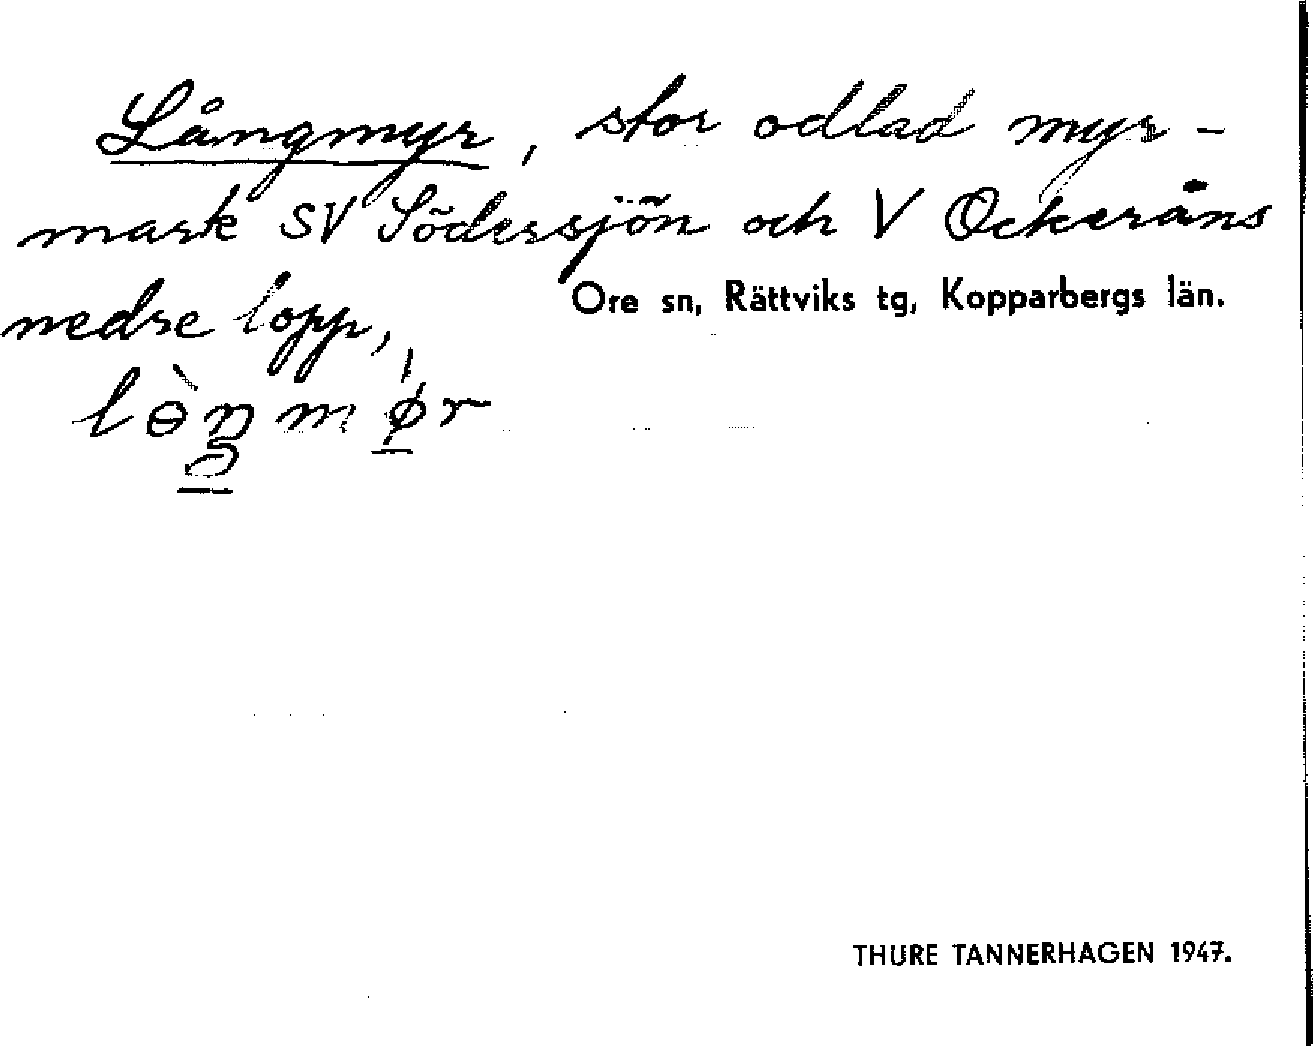 Långmyr, stor odlad myr-
mark SV Södersjön och V Ockeråns
nedre lopp,
Ore sn, Rättviks tg, Kopparbergs län.
THURE TANNERHAGEN 1947.